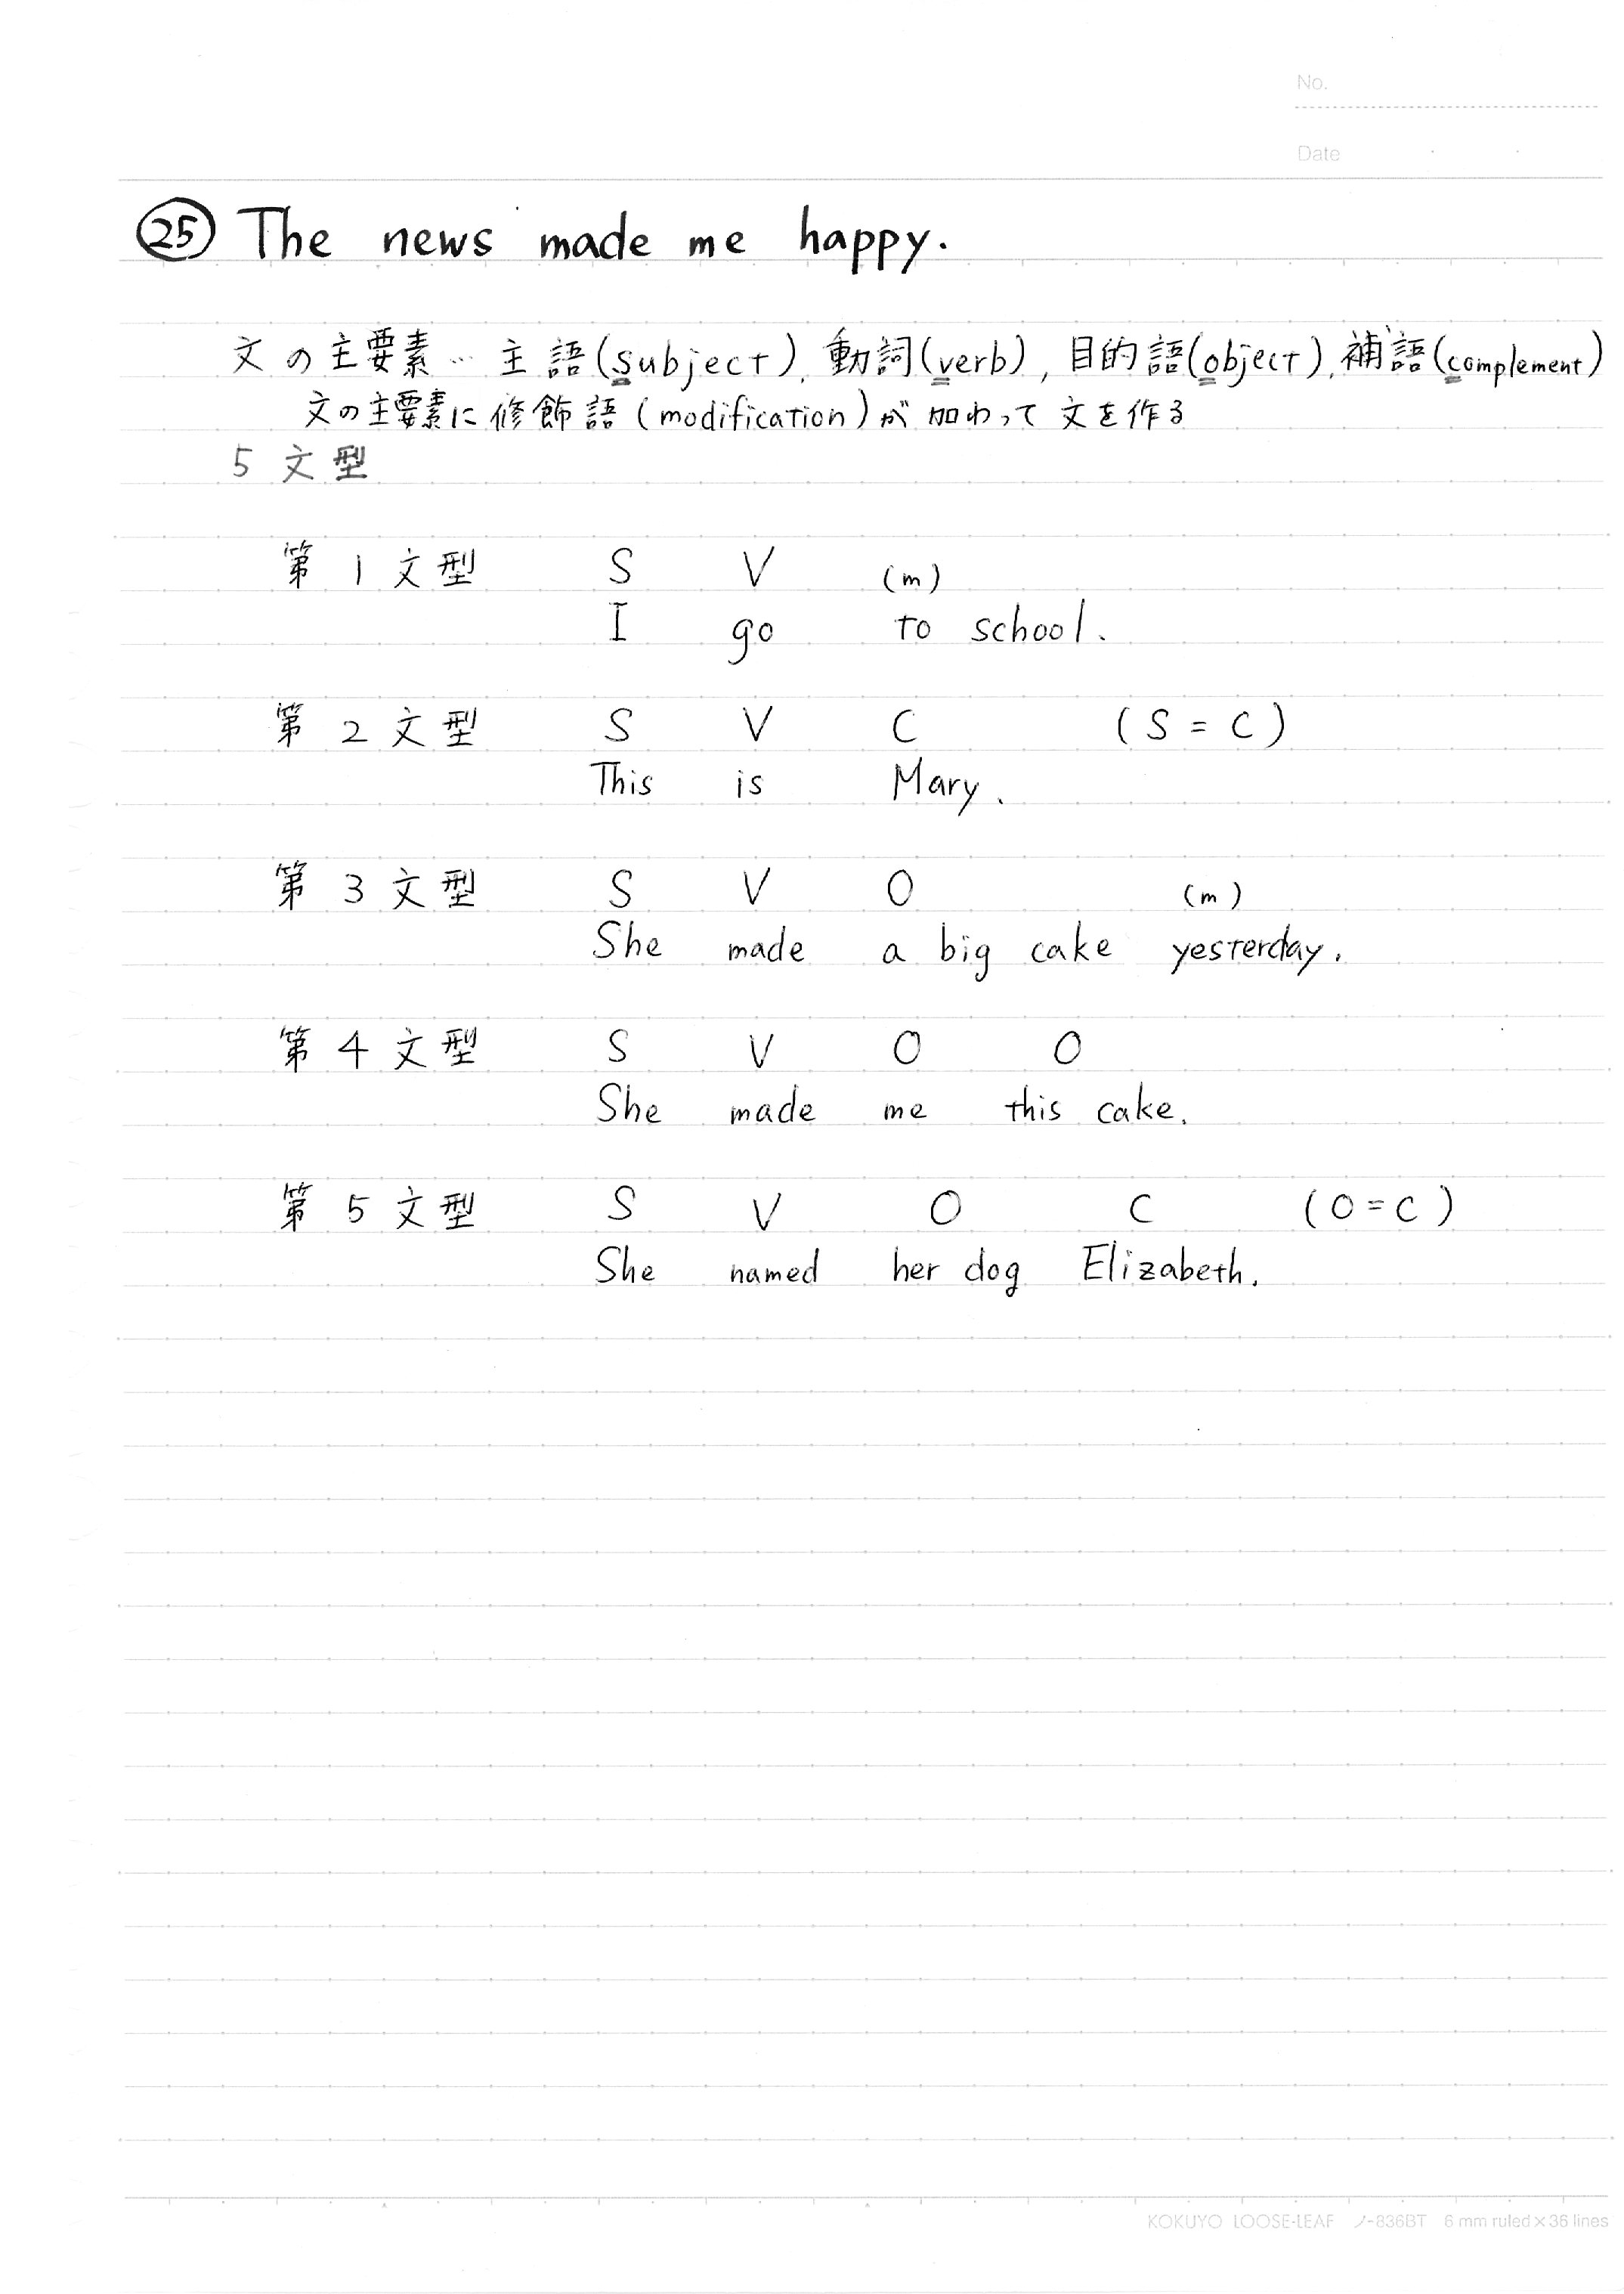 No.
Date
㉕ The news made me happy.
文の主要素… 主語(subject), 動詞(verb), 目的語(object), 補語(complement)
文の主要素に修飾語(modification)が加わって文を作る
5文型
第1文型 S V (m)
I go to school.
第2文型 S V C (S = C)
This is Mary.
第3文型 S V O (m)
She made a big cake yesterday.
第4文型 S V O O
She made me this cake.
第5文型 S V O C (O = C)
She named her dog Elizabeth.
KOKUYO LOOSE-LEAF ノ-836BT 6 mm ruled×36 lines